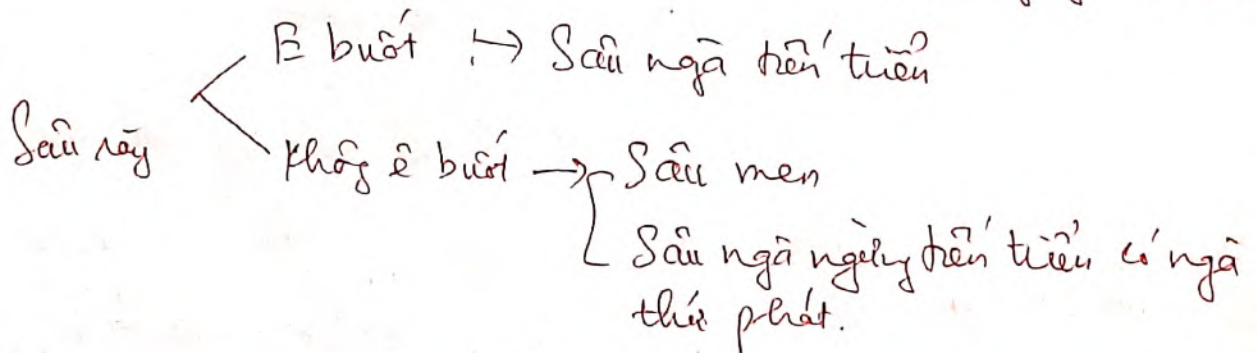 Ê buốt → Sâu ngà tiến triển
Sâu răng
Không ê buốt → Sâu men
Sâu ngà ngừng tiến triển có ngà
thứ phát.